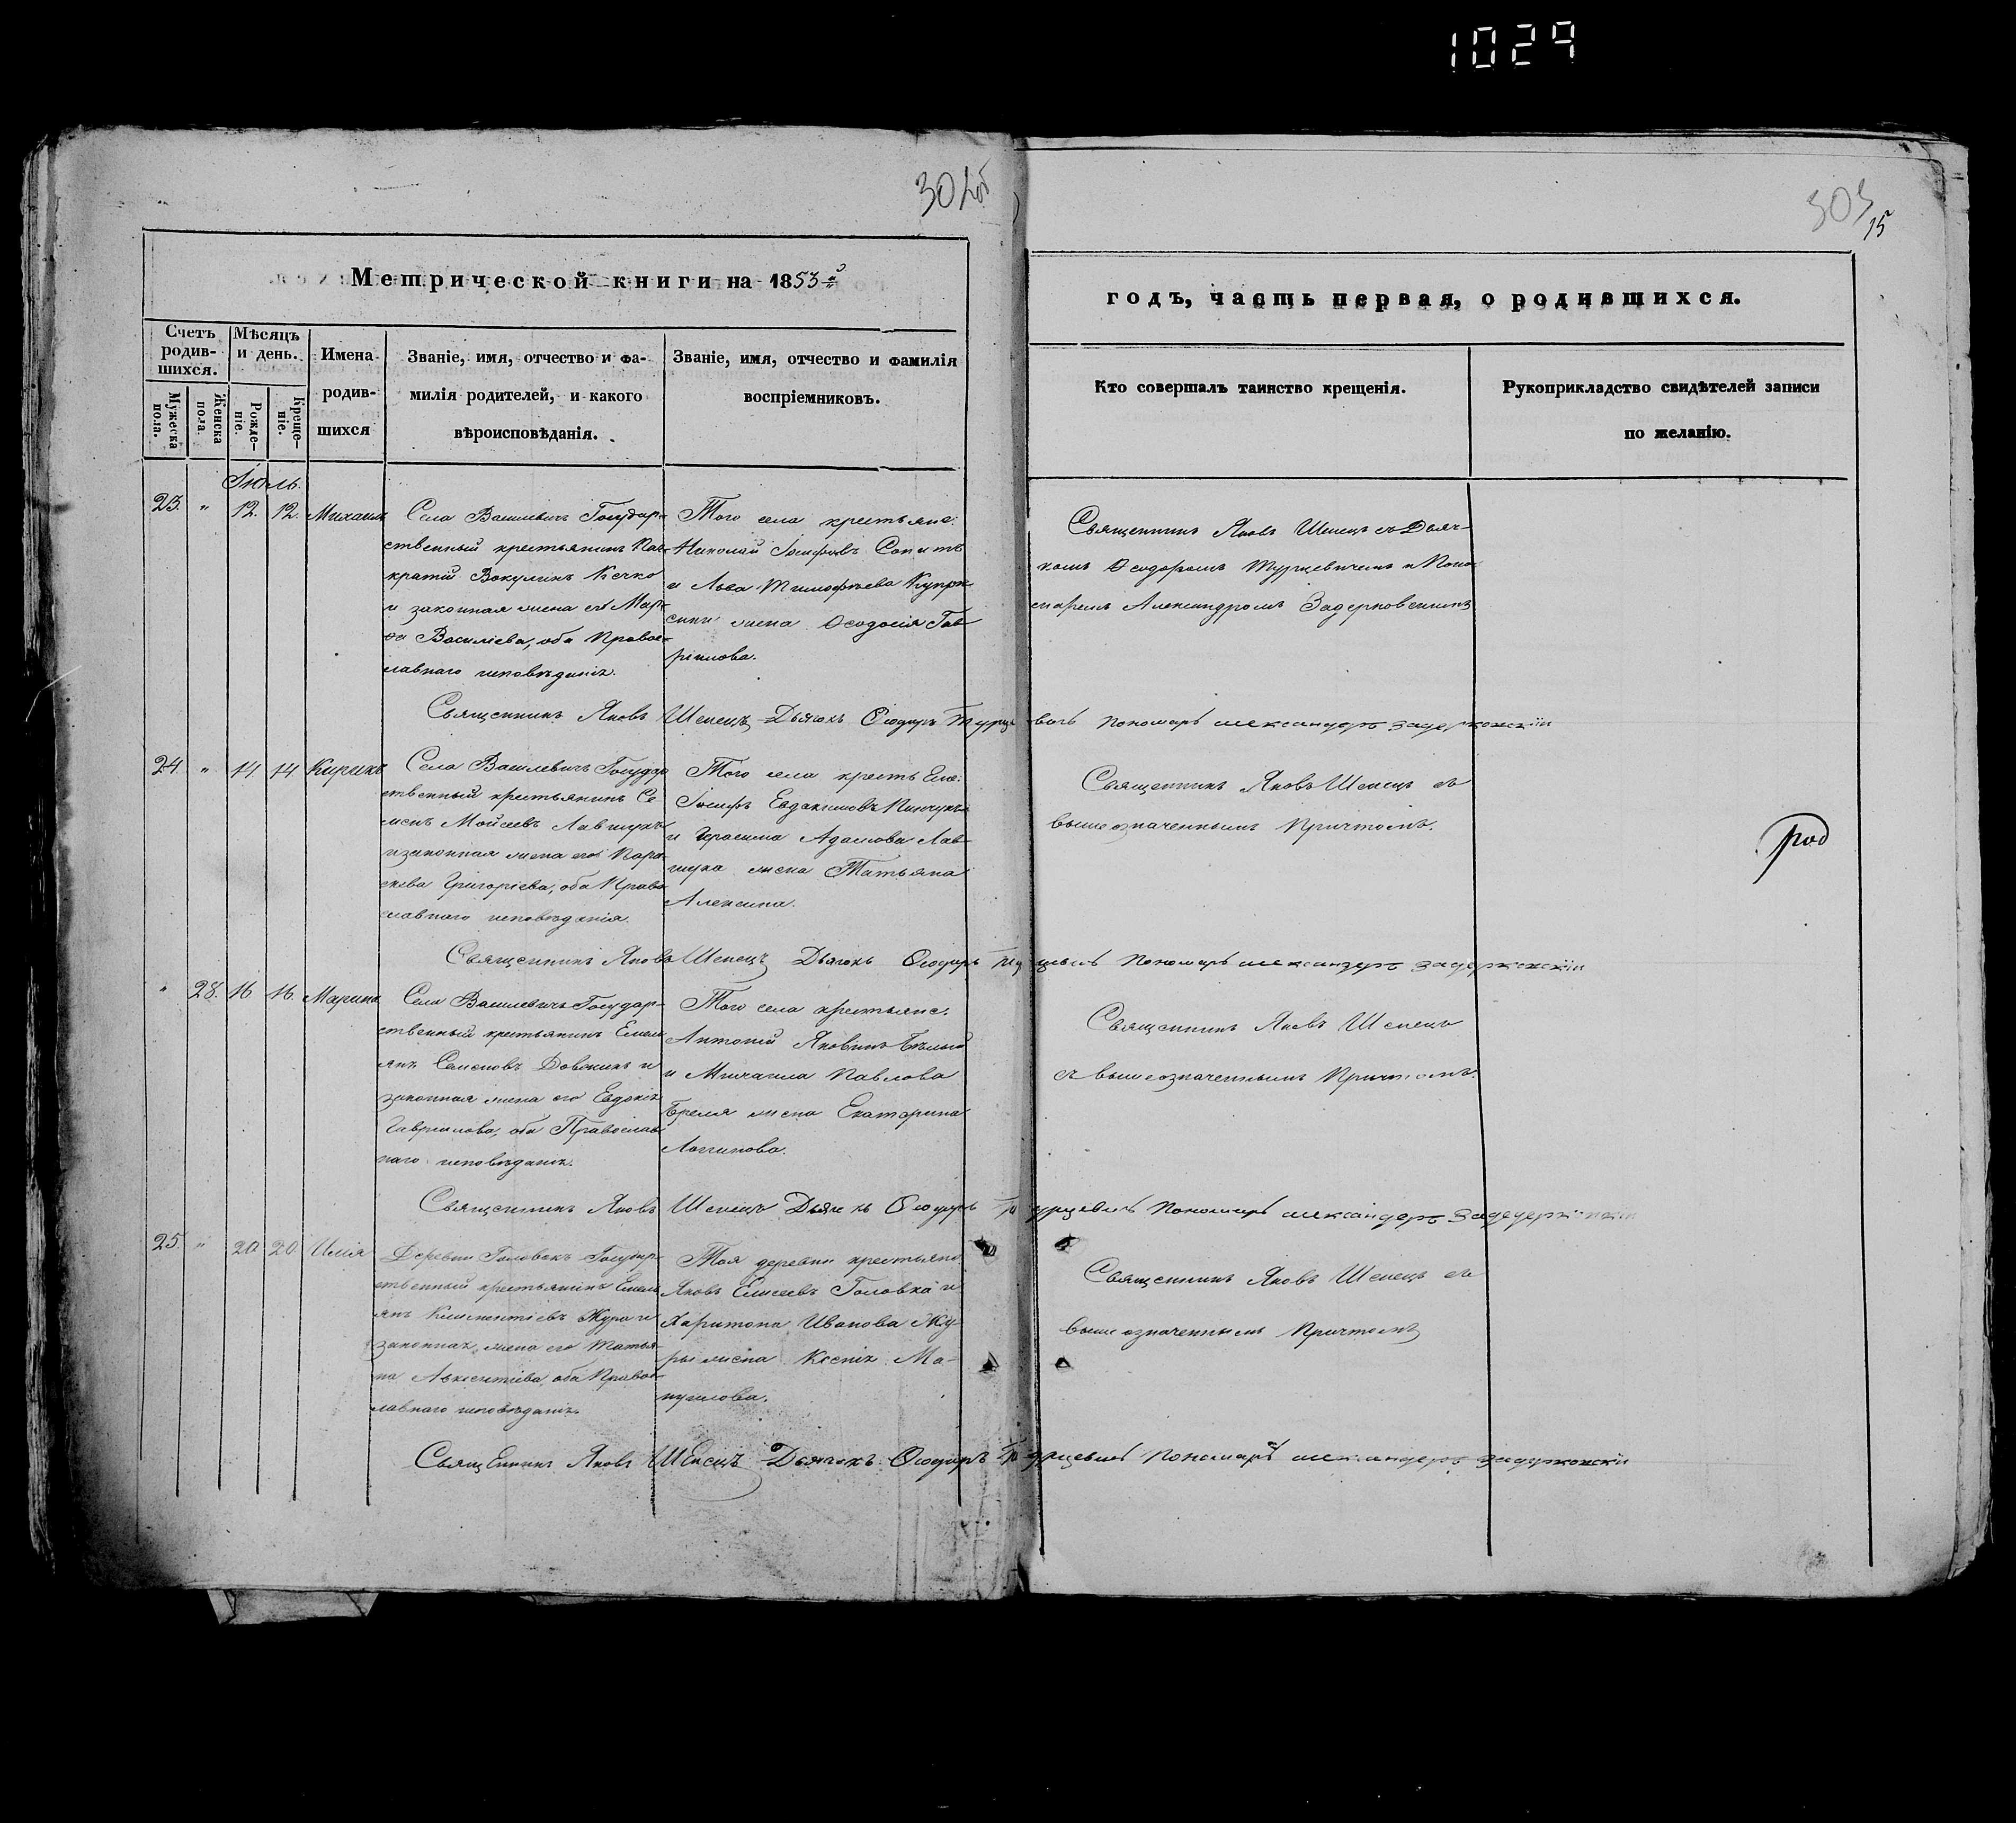 1029
302об
303
15
Метрической книги на 1853й
годъ, часть первая, о родившихся.
Счетъ родив-шихся.
Мужеска пола.
Женска пола.
Мѣсяцъ и день.
Рожде-ніе.
Креще-ніе.
Имена родив-шихся
Званіе, имя, отчество и фа-
милія родителей, и какого
вѣроисповѣданія.
Званіе, имя, отчество и фамилія
воспріемниковъ.
Кто совершалъ таинство крещенія.
Рукоприкладство свидѣтелей записи
по желанію.
Іюль.
23. " 12. 12. Михаилъ
Села Василевичъ Государ-
ственный крестьянинъ Пан-
кратій Вокулинъ Кечко
и законная жена его Мар-
ѳа Василіева, оба Правос-
лавнаго исповѣданія.
Того села крестьяне:
Николай Іосифовъ Сопитъ
и Льва Тимофѣева
жена Ѳеодосія Гав-
ріилова.
Священникъ Яковъ Шепецъ съ Дьяч-
комъ Ѳеодоромъ Турцевичемъ и Поно-
маремъ Александромъ Задерковскимъ
Священникъ Яковъ Шепецъ Дьячокъ Ѳеодоръ Турцевичъ Пономаръ александеръ задерковскій
24 " 14. 14 Кирикъ
Села Василевичъ Государ
ственный крестьянинъ Се
менъ Мойсеевъ Лавшукъ
и законная жена его Пара-
скева Григоріева, оба Право
славнаго исповѣданія.
Того села крестьяне:
Іосифъ Евдакимовъ Пинчукъ
и Герасима Адамова Лав-
шука жена Татьяна
Алексина.
Священникъ Яковъ Шепецъ съ
вышеозначеннымъ Причтомъ.
род
Священникъ Яковъ Шепецъ Дьячокъ Ѳеодоръ Турцевичъ Пономаръ александеръ задерковскій
" 28. 16 16. Марина
Села Василевичъ Государ-
ственный крестьянинъ Емели
янъ Семеновъ и
законная жена его Евдокія
Гавріилова, оба Православ
наго исповѣданія.
Того села крестьяне:
Антоній Яковинъ Бѣлый
и Михаила Павлова
жена Екатерина
Логгинова.
Священникъ Яковъ Шепецъ
съ вышеозначеннымъ Причтомъ.
Священникъ Яковъ Шепецъ Дьячокъ Ѳеодоръ Турцевичъ Пономаръ александеръ
25. " 20 20 Илія
Деревни Головокъ Государ-
ственный крестьянинъ Емели
янъ Климентіевъ Жура и
законная жена его Татья-
на Авксентіева, оба Правос-
лавнаго исповѣданія.
Тоя деревни крестьяне
Яковъ Елисеевъ Головка и
Харитона Иванова Жу-
ры жена Ксенія Ма-
нуилова.
Священникъ Яковъ Шепецъ съ
вышеозначеннымъ Причтомъ
Священникъ Яковъ Шепецъ Дьячокъ Ѳеодоръ Турцевичъ Пономаръ александеръ задерковскій